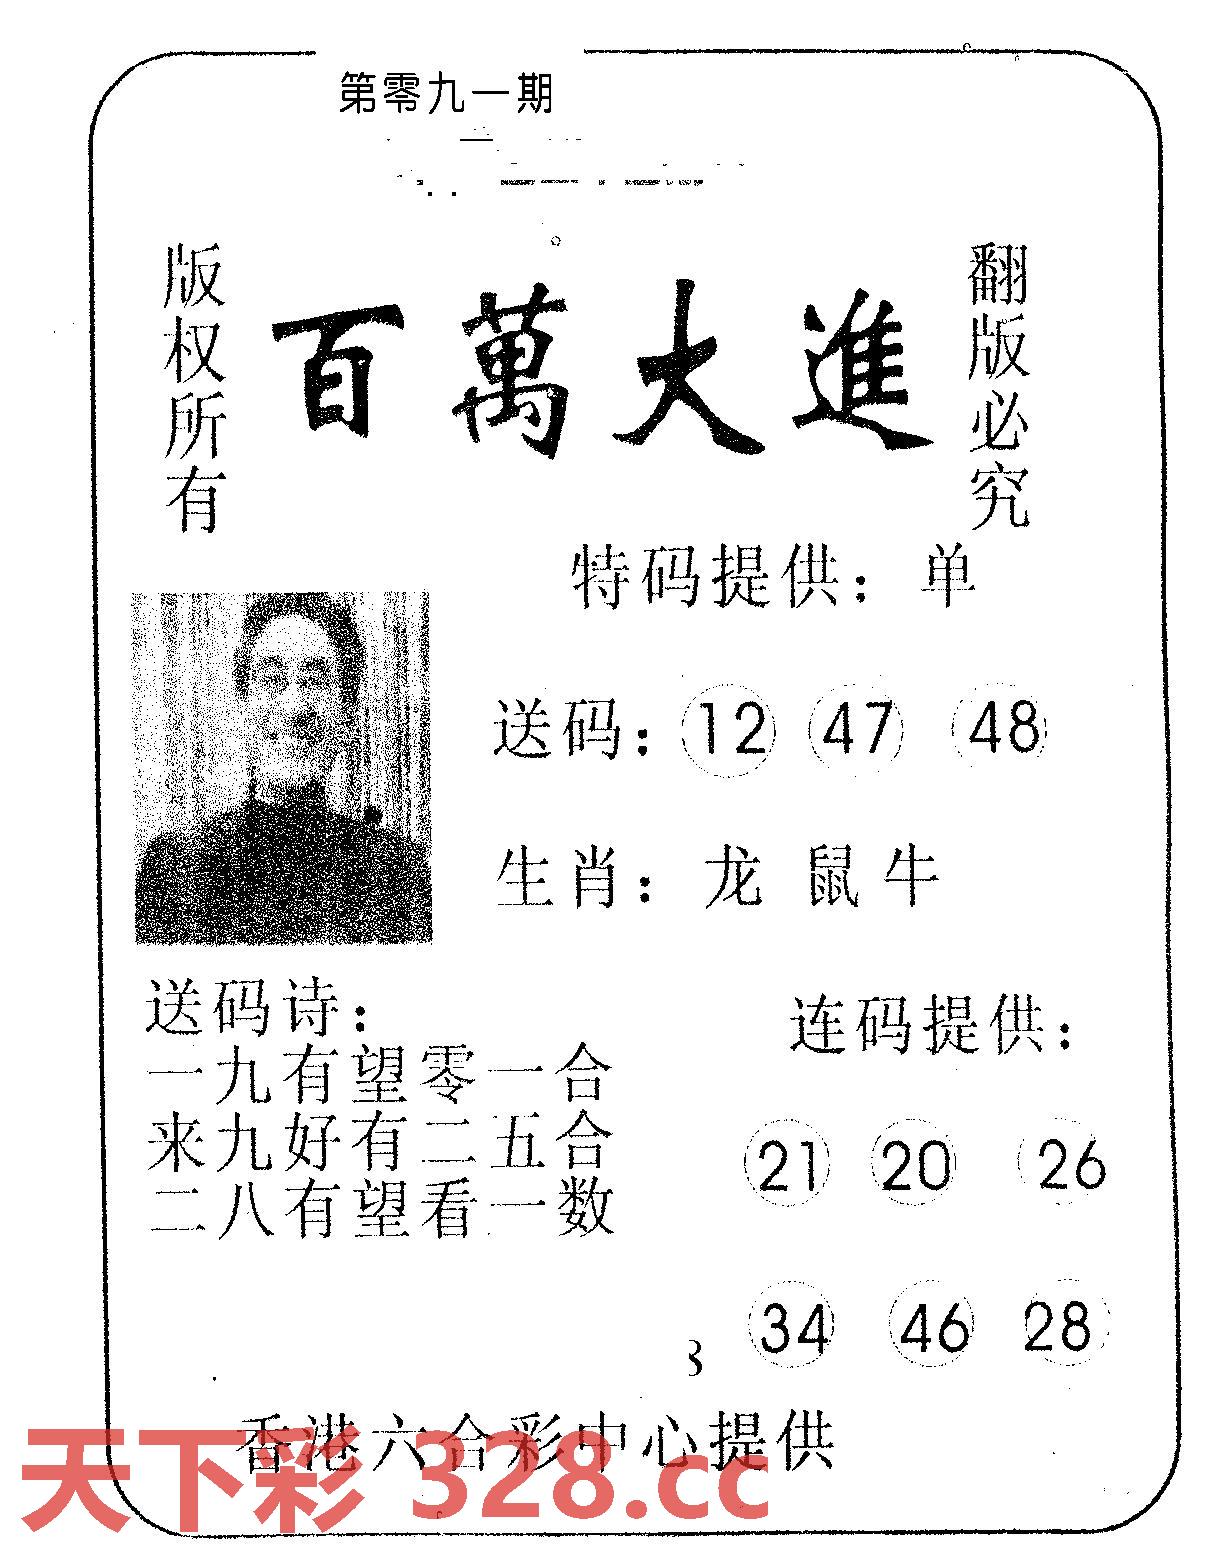 第零九一期
版权所有
百萬大進
翻版必究
特码提供：单
送码：12 47 48
生肖：龙 鼠 牛
送码诗：
一九有望零一合
来九好有二五合
二八有望看一数
连码提供：
21 20 26
34 46 28
香港六合彩中心提供
天下彩 328.cc